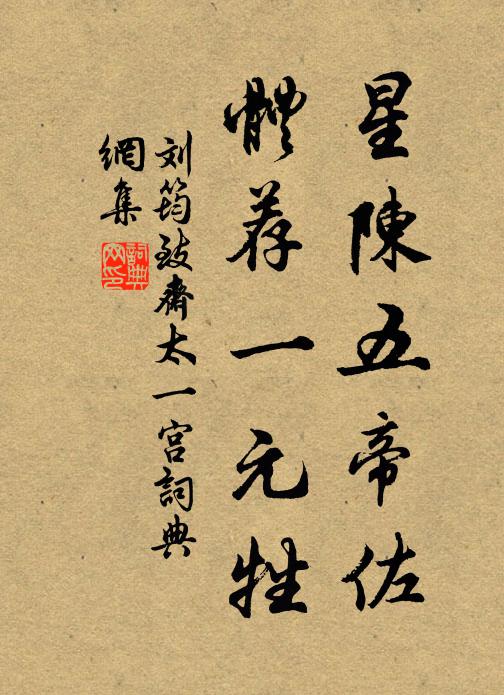 星陳五帝佐
體荐一元牲
刘筠致齋太一宫詞典
網集
詞典網印